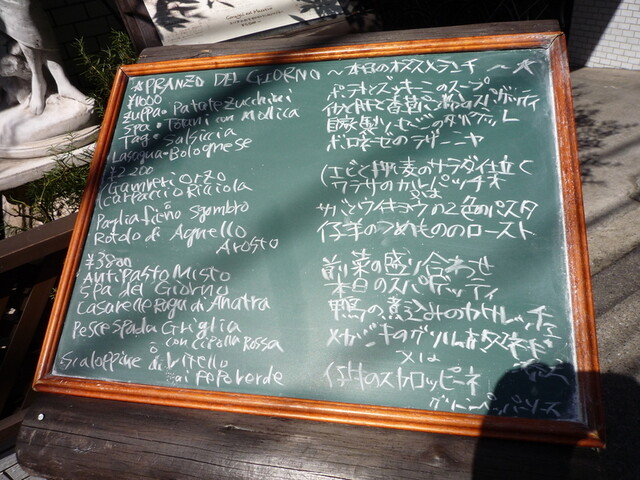 *PRANZO DEL GIORNO 〜本日のオススメランチ〜
¥1000
Zuppa・Patate Zucchini ポテトとズッキーニのスープ
Spa・Tonni con Mollica スパゲッティ
Tag・Salsiccia 自家製ソーセージのタリアテッレ
Lasagna・Bolognese ボロネーゼのラザーニャ
¥2200
Gamberi Orzo (エビと押し麦のサラダ仕立て
Carpaccio Ricciola ワラサのカルパッチョ
o 又は
Paglia fieno Sgombro サバとウイキョウの2色のパスタ
Rotolo di Agnello 仔羊のつめもののロースト
Arosto
¥3800
Anti Pasto Misto 前菜の盛り合わせ
Spa del Giorno 本日のスパゲッティ
Casarelle Ragu di Anatra 鴨の煮込みの
Pesce Spada Griglia メカジキのグリル
con Cipolla Rossa
o 又は
Scaloppine di Vitello 仔牛のスカロッピーネ
ai Pepe Verde グリーンペッパーソース